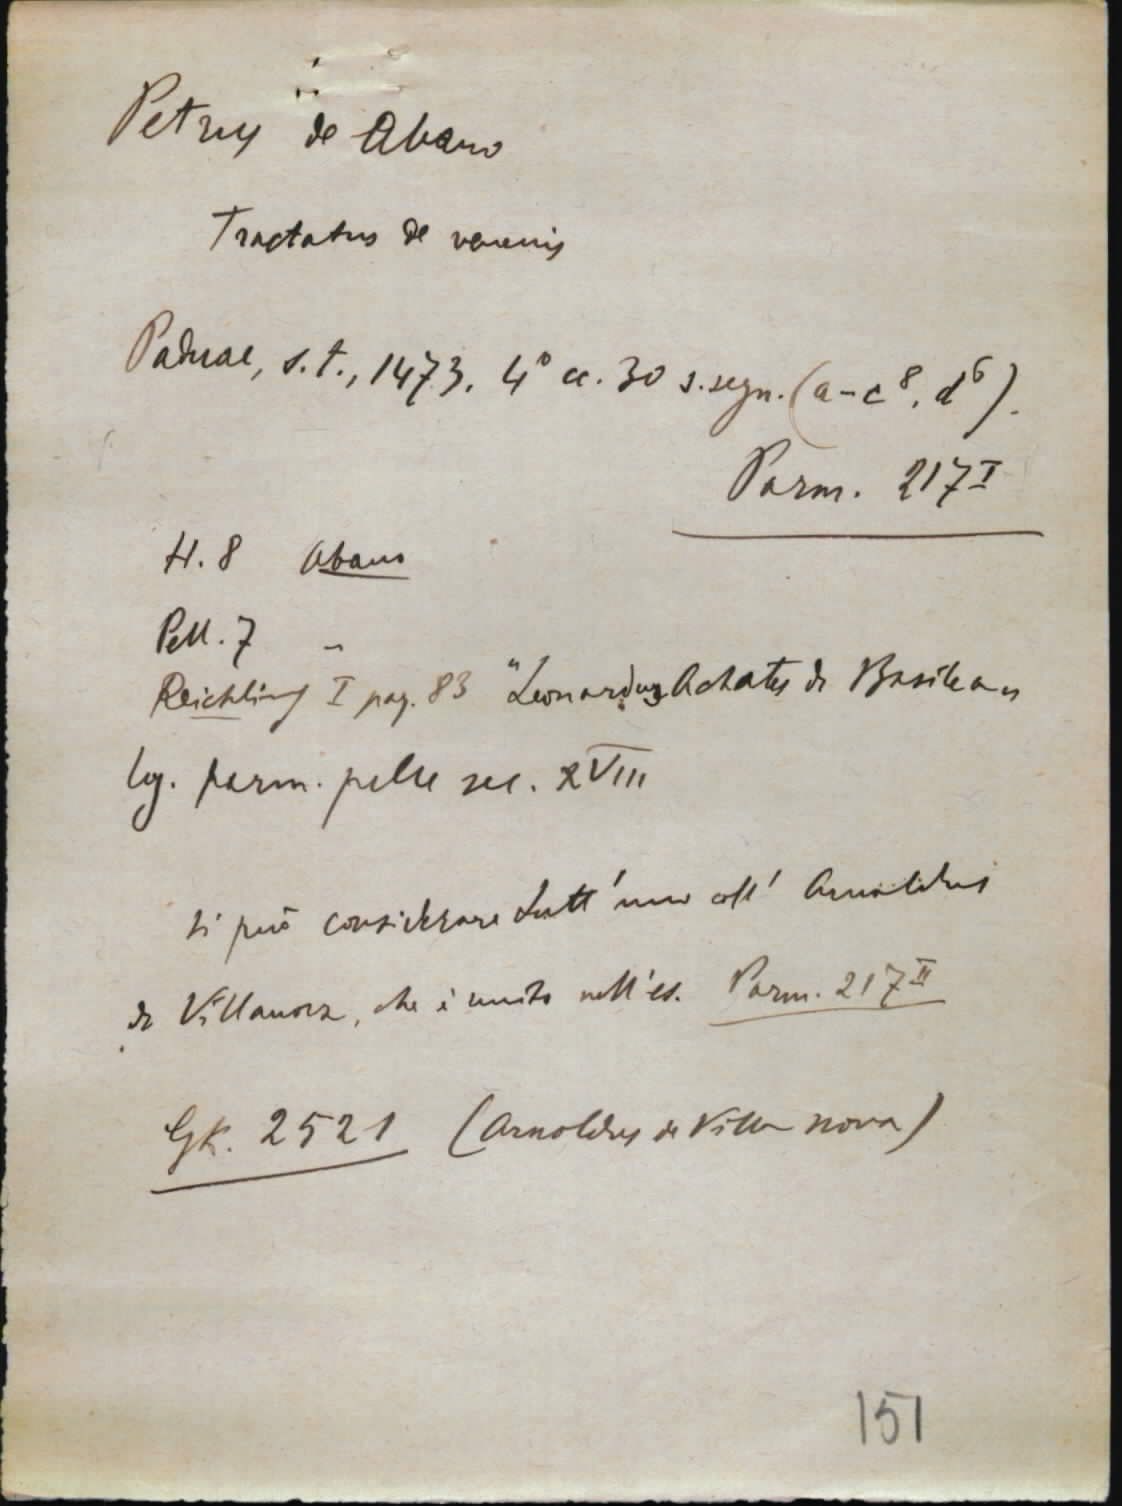 Petrus de Abano
Tractatus de venenis
Paduae, s.t., 1473. 4° cc. 30 s.segn. (a-c⁸, d⁶).
Parm. 217 I
H. 8 Abano
Pell. 7 "
Reichling I pag. 83 "Leonardus Achates de Basilea"
leg. parm. pelle sec. XVIII
Si può considerare tutt'uno coll'Arnaldus
de Villanova, che è unito nell'es. Parm. 217 II
GK. 2521 (Arnoldus de Villa nova)
151